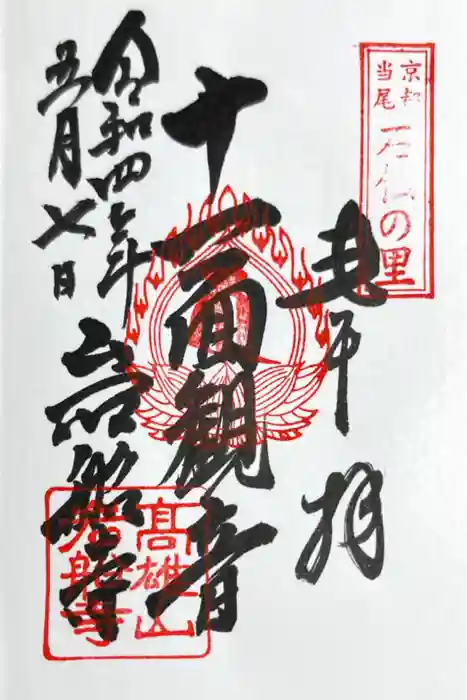 京都
当尾
石仏の里
奉拝
十一面観音
令和四年
五月七日
岩船寺
高雄山
岩船寺